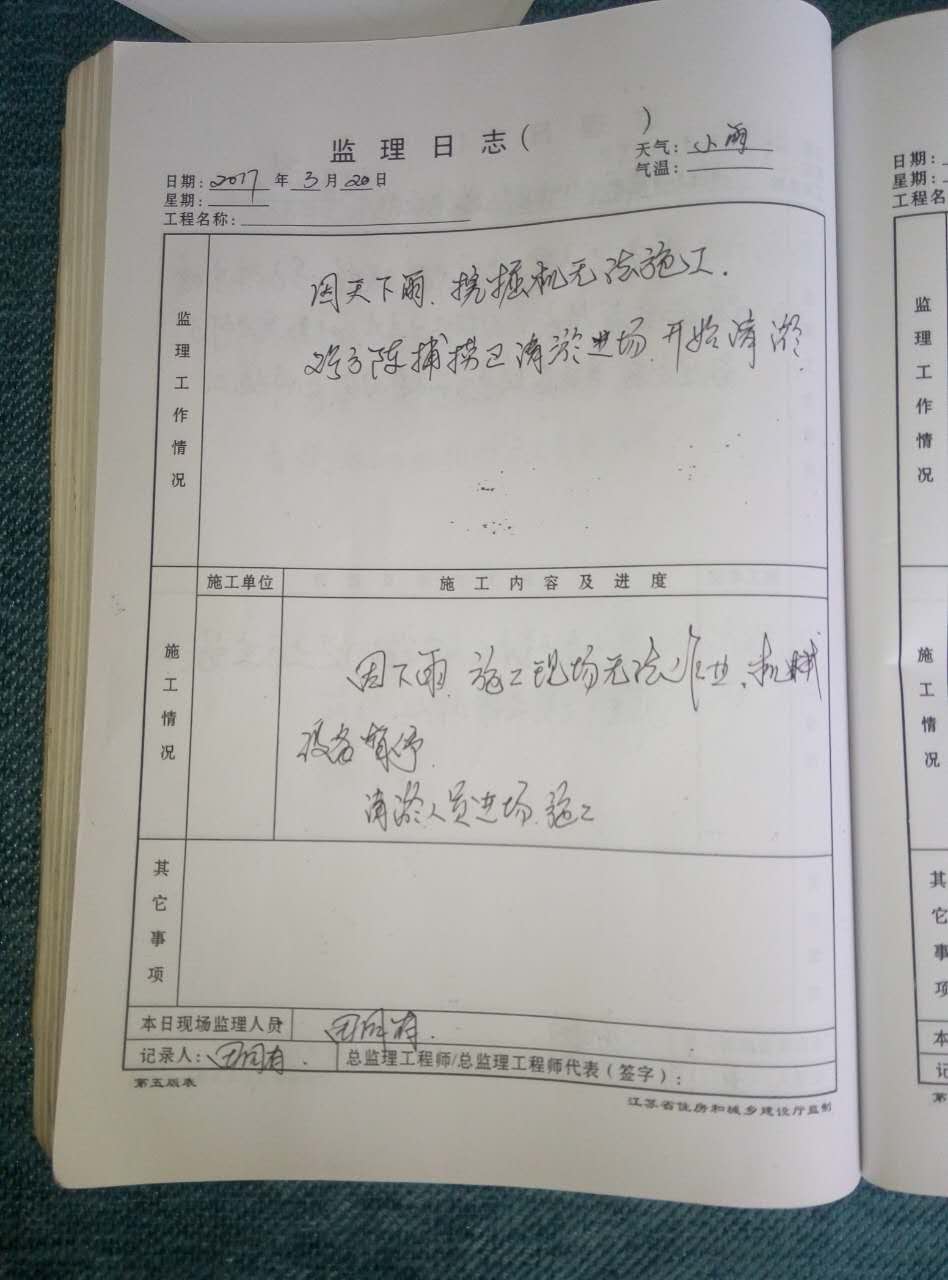 监理日志( )
天气: 小雨
日期: 2017 年 3 月 20 日
气温:
星期:
工程名称:
监理工作情况
因天下雨.挖掘机无法施工.
陈捕捞 清淤进场.开始清淤.
施工单位 施工内容及进度
施工情况
因下雨.施工现场无法作业,机械
设备暂停.
清淤人员进场.施工
其它事项
本日现场监理人员
记录人:
总监理工程师/总监理工程师代表(签字):
第五版表
江苏省住房和城乡建设厅监制
日期:
星期:
工程名
监理工作情况
施工情况
其它事项
本
记
第